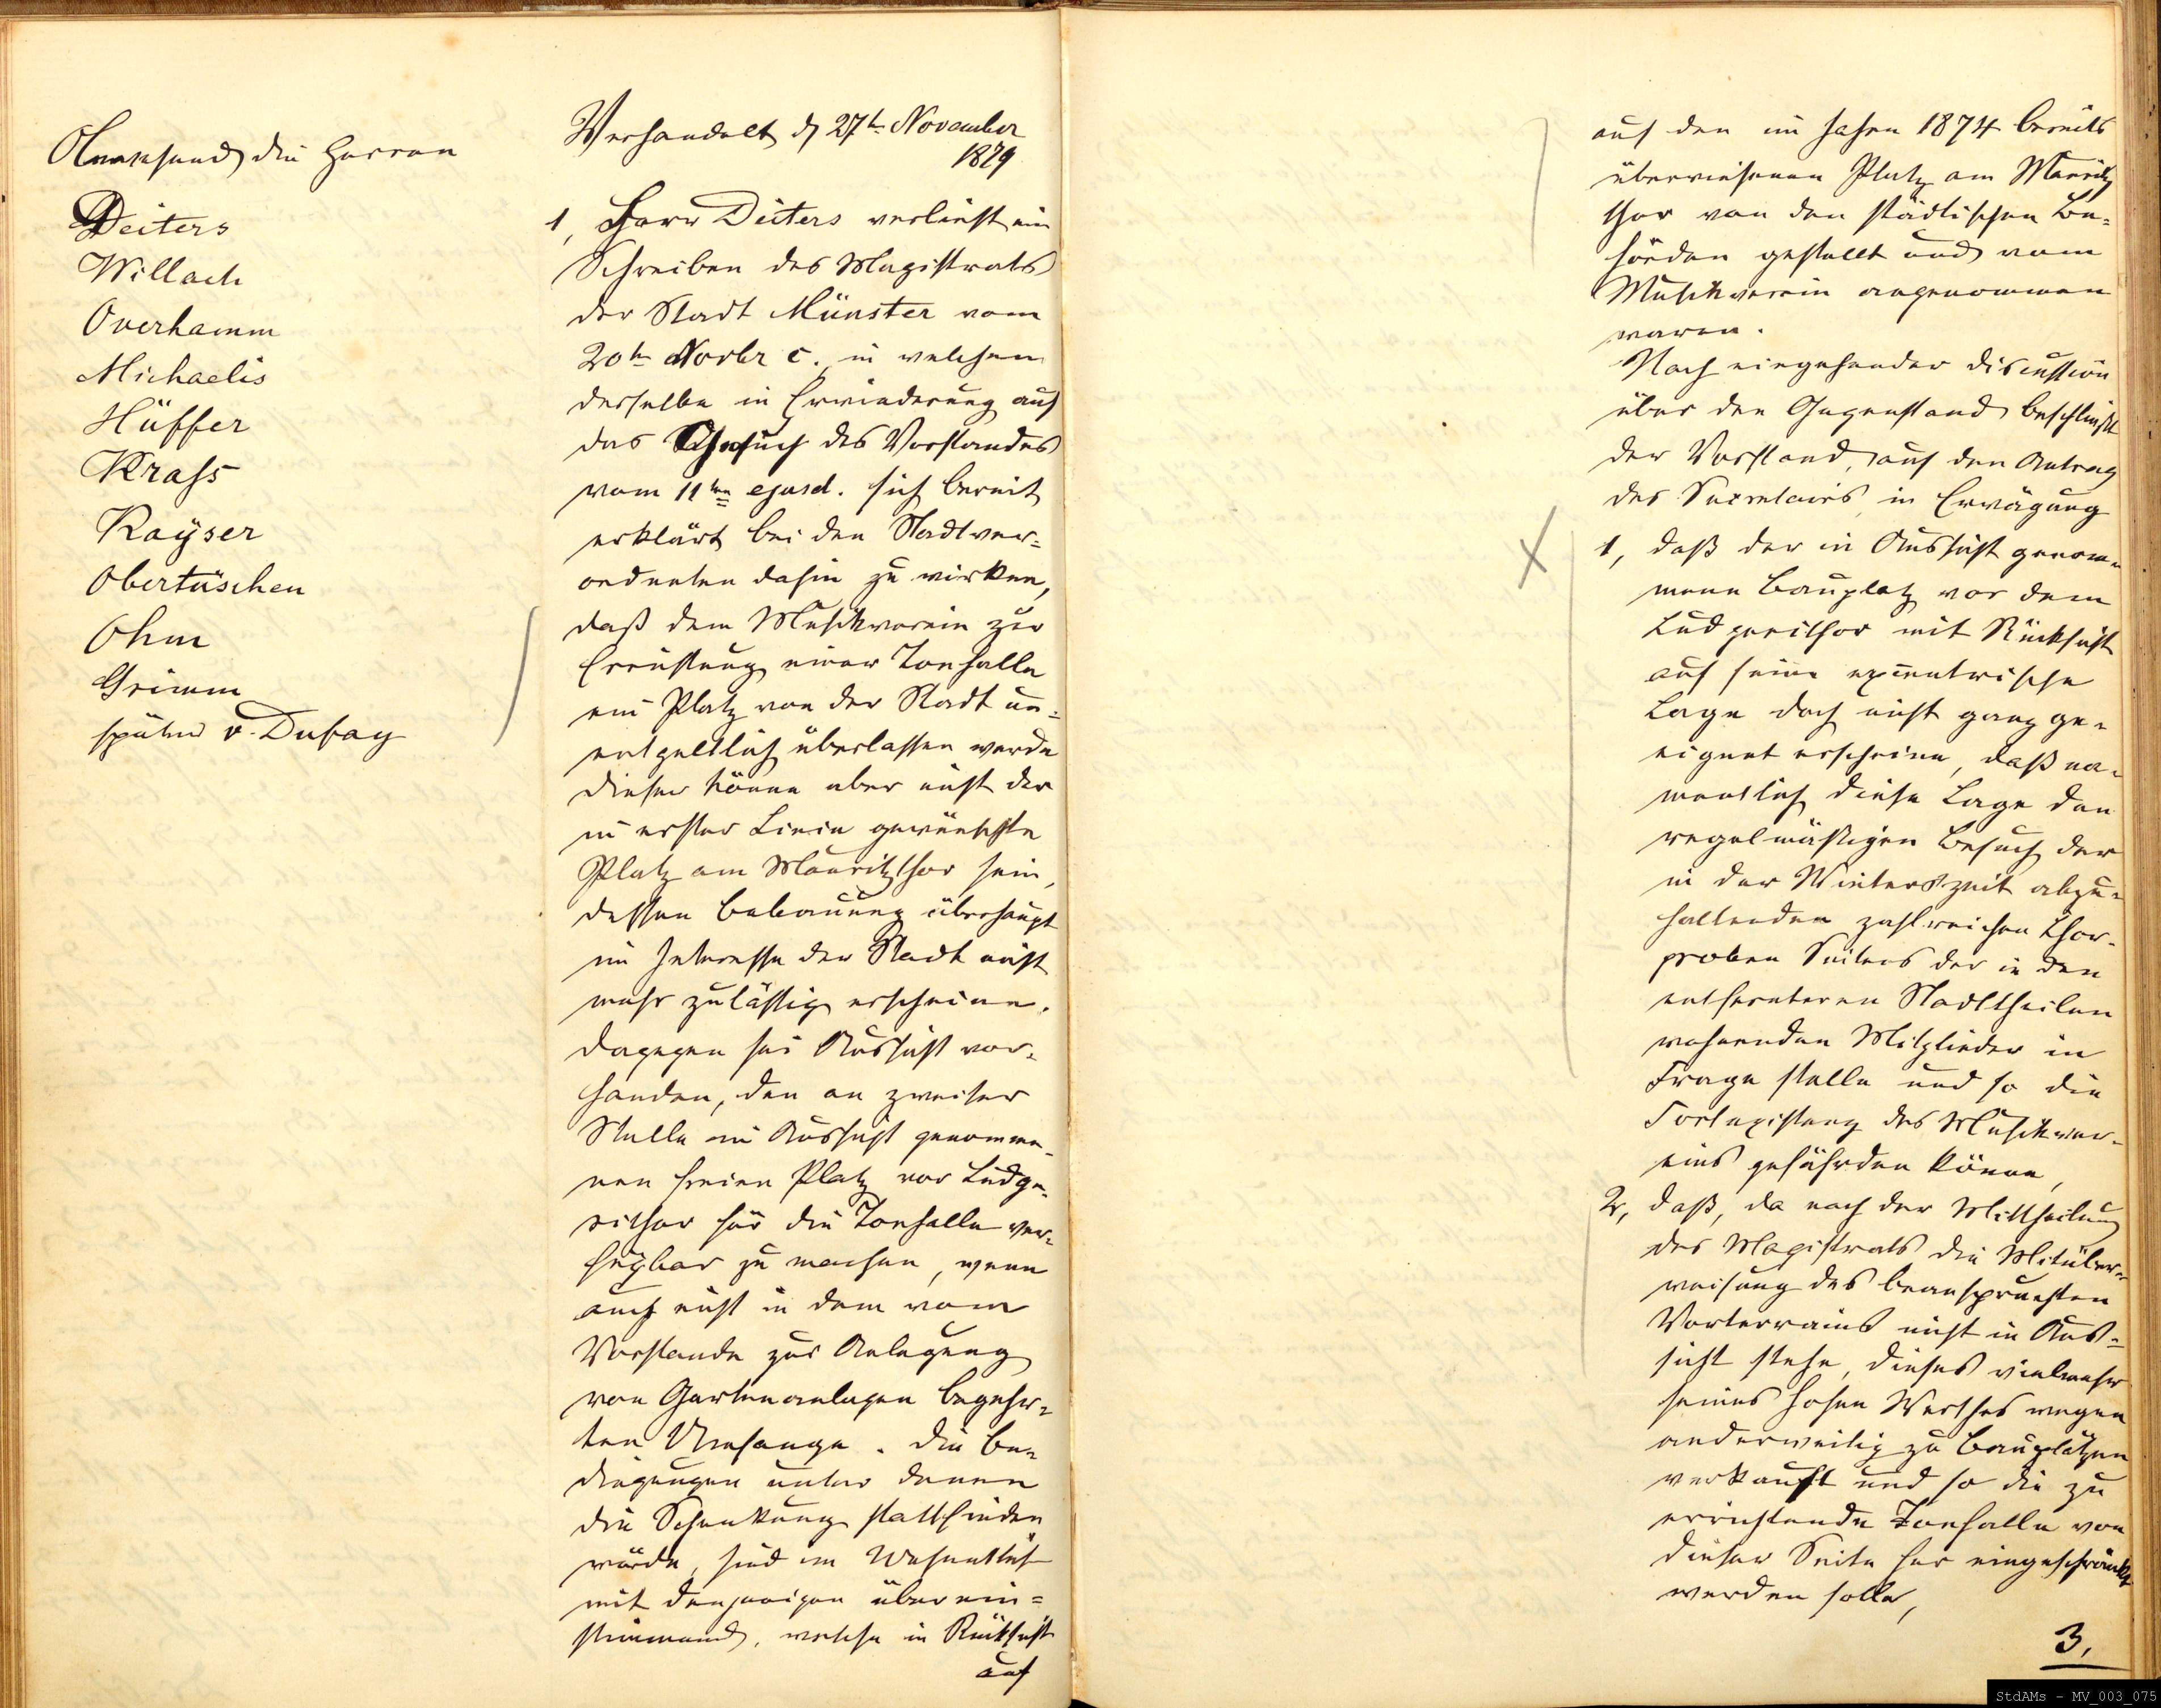 Anwesend die Herren
Deiters
Willach
Overhamm
Michaelis
Hüffer
Krass
Kayser
Obertüschen
Ohm
Grimm
später v. Dufay
Verhandelt d 27t November
1879
1, Herr Deiters verliest ein
Schreiben des Magistrats
der Stadt Münster vom
20tn Novbr c. in welchem
derselbe in Erwiederung auf
das Gesuch des Vorstandes
vom 11ten ejusd. sich bereit
erklärt bei den Stadtver=
ordneten dahin zu wirken,
daß dem Musikverein zur
Errichtung einer Tonhalle
ein Platz von der Stadt un=
entgeltlich überlassen werde
dieser könne aber nicht der
in erster Linie gewünschte
Platz am Mauritzthor sein,
dessen Bebauung überhaupt
im Interesse der Stadt nicht
mehr zulässig erscheine.
dagegen sei Aussicht vor=
handen, den an zweiter
Stelle in Aussicht genomme=
nen freien Platz vor Ludge=
rithor für die Tonhalle ver=
fügbar zu machen, wenn
auch nicht in dem vom
Vorstande zur Anlegung
von Gartenanlagen begehr=
ten Umfange. Die Be=
dingungen unter denen
die Schenkung stattfinden
würde, sind im Wesentlich
mit denjenigen überein=
stimmend, welche in Rücksicht
auf
auf den im Jahre 1874 bereits
überwiesenen Platz am Mauritz
thor von den städtischen Be=
hörden gestellt und vom
Musikverein angenommen
waren.
Nach eingehender Discussion
über den Gegenstand beschließt
der Vorstand, auf den Antrag
des Secretairs, in Erwägung
1, daß der in Aussicht genom=
mene Bauplatz vor dem
Ludgerithor mit Rücksicht
auf seine excentrische
Lage doch nicht ganz ge=
eignet erscheine, daß na=
mentlich diese Lage den
regelmäßigen Besuch der
in der Winterszeit abzu=
haltenden zahlreichen Chor=
proben Seitens der in den
entfernteren Stadttheilen
wohnenden Mitglieder in
Frage stelle und so die
Fortexistenz des Musikver=
eins gefährden könne,
2, daß, da nach der Mittheilung
des Magistrats die Mitüber=
weisung des beanspruchten
Vorterrains nicht in Aus=
sicht stehe, dieses vielmehr
seines hohen Werthes wegen
anderweitig zu Bauplätzen
verkauft und so die zu
errichtende Tonhalle von
dieser Seite her eingeschränkt
werden solle,
3.
StdAMs - MV_003_075